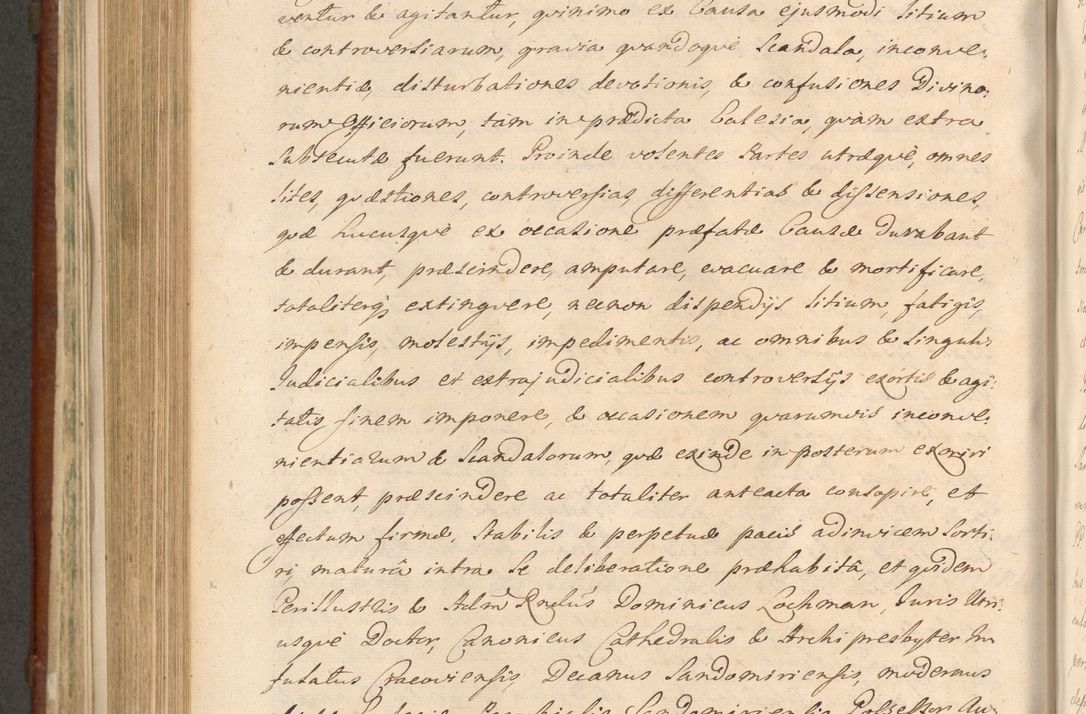 ventur & agitantur, qvinimo ex Causa ejusmodi Litium
& controversiarum, gravia qvandoqvè Scandala, inconve:
nientiæ, disturbationes devotionis, & confusiones Divino:
rum Officiorum, tàm in prædicta Eclesia, qvàm extra
subsecutæ fuerunt. Proinde volentes Partes utræqvè, omnes
Lites, qvæstiones, controversias, differentias & dissensiones,
qvæ hucusqvè ex occasione præfatæ Causæ durabant
& durant, præscindere, amputare, evacuare & mortificare,
totaliterq; extingvere, necnon dispendijs Litium, fatigijs,
impensis, molestijs, impedimentis, ac omnibus & singulis
Judicialibus et extrajudicialibus controversijs exortis & agi:
tatis finem imponere, & occasionem qvarumvis inconve:
nientiarum & Scandalorum, qvæ exinde in posterum exoriri
possent, præscindere ac totaliter anteacta consopire, et
effectum firmæ, stabilis & perpetuæ pacis adinvicem sorti:
ri, maturâ intra se deliberatione præhabitâ, et qvidem
Perillustris & Adm Rndus Dominicus Lochman, Juris Utri:
usqvè Doctor, Canonicus Cathedralis & Archipresbyter In
fulatus Cracoviensis, Decanus Sandomiriensis, modernus
Sandomiriensis Possessor